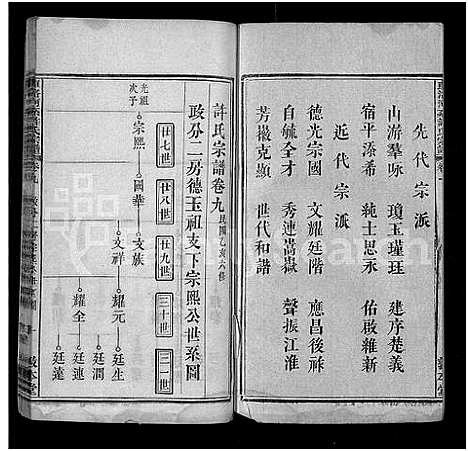 先代宗派
山游羣咏　瓊玉瑾珏　建序楚義
宿平添希　純士思永　何啟雒新
近代宗派
德光宗國　文耀廷階　應昌後裕
自毓全才　秀連嵩嶽　聲振江淮
芳徽克顯　世代和諧
許氏宗譜卷九民國乙亥六修
政分二房德玉祖支下宗熙公世系圖
廿七世　廿八世　廿九世　三十世　三一世
光祖次子
宗熙　國華　文族
文祥　耀元　廷生
廷潤
耀全　廷遠